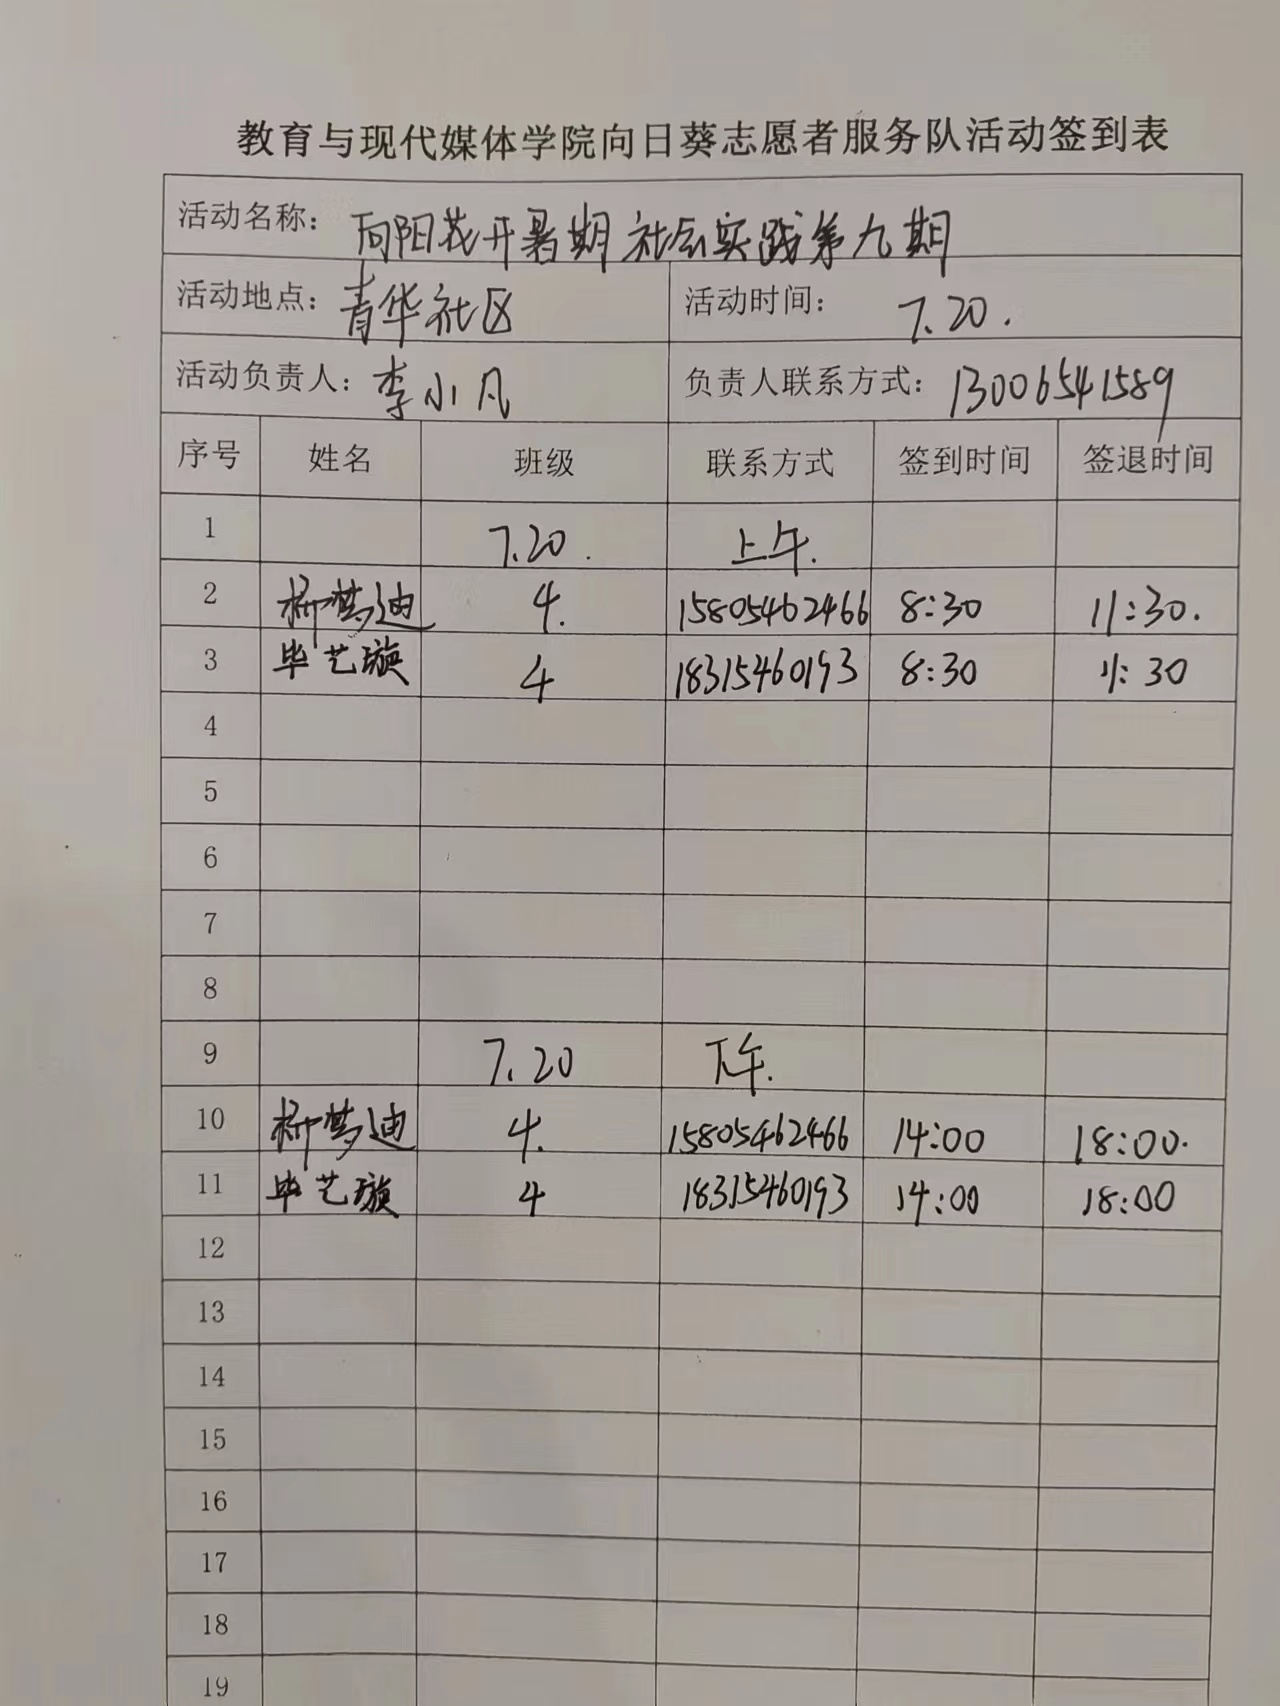 教育与现代媒体学院向日葵志愿者服务队活动签到表
活动名称: 向阳花开暑期社会实践第九期
活动地点: 青华社区 活动时间: 7.20.
活动负责人: 李小凡 负责人联系方式: 13006541589
序号 姓名 班级 联系方式 签到时间 签退时间
1 7.20. 上午.
2 柳梦迪 4. 15805462466 8:30 11:30.
3 毕艺璇 4 18315460193 8:30 11:30
4
5
6
7
8
9 7.20 下午.
10 柳梦迪 4. 15805462466 14:00 18:00.
11 毕艺璇 4 18315460193 14:00 18:00
12
13
14
15
16
17
18
19